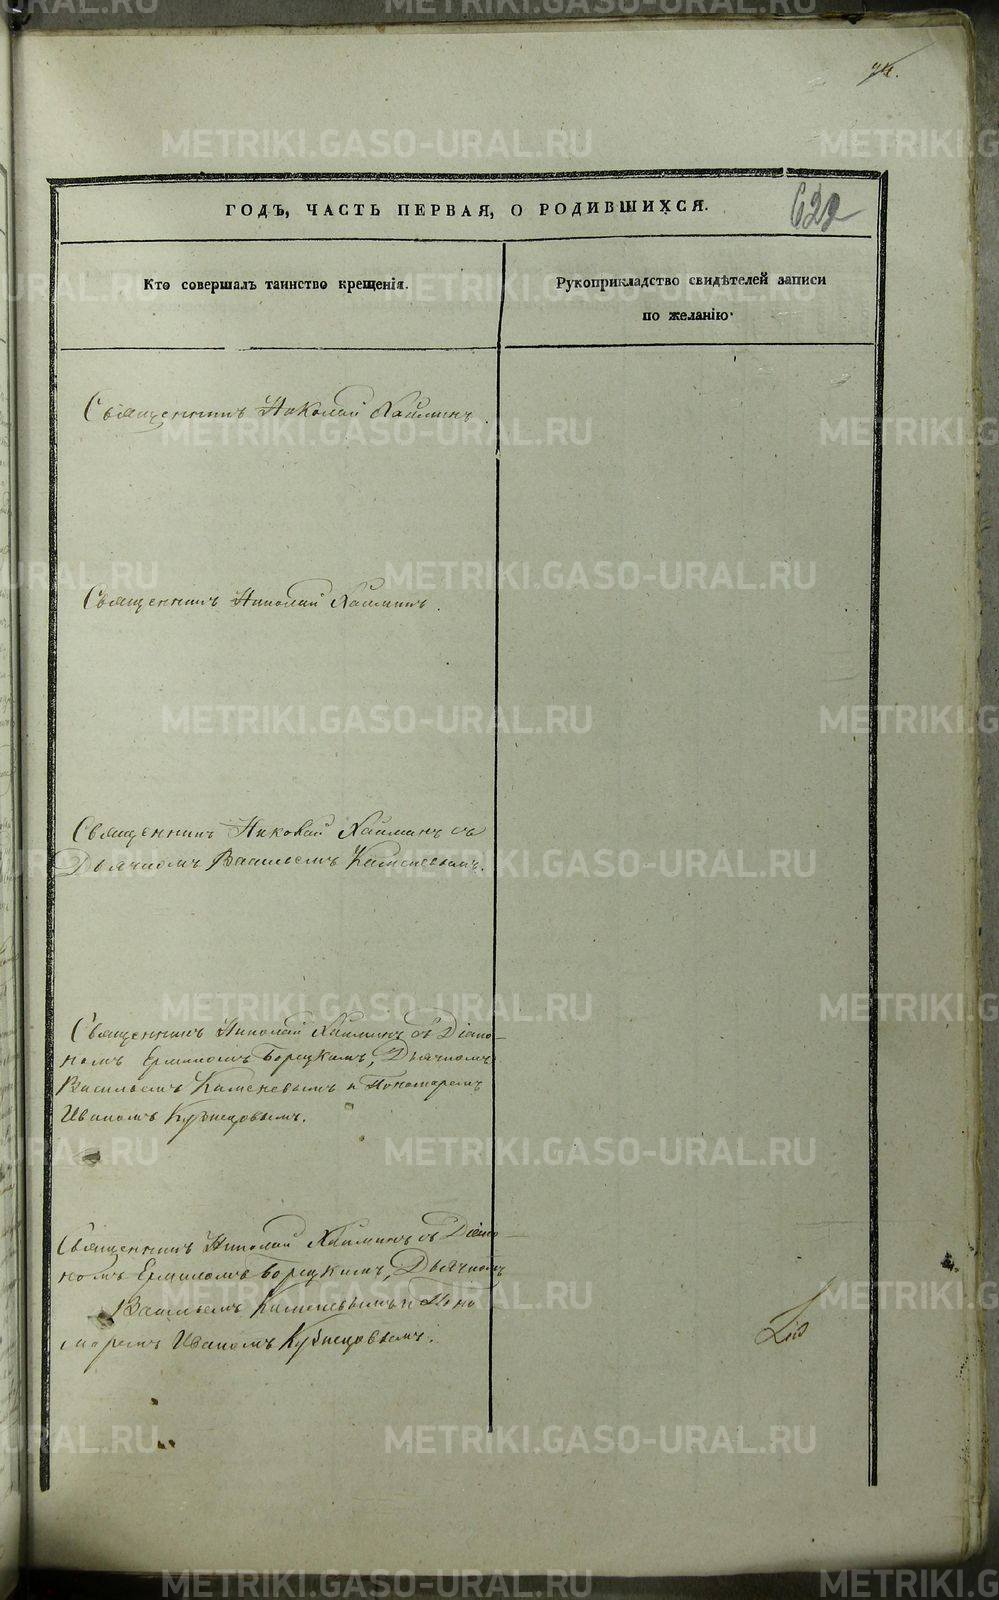 METRIKI.GASO-URAL.RU
ГОДЪ, ЧАСТЬ ПЕРВАЯ, О РОДИВШИХСЯ.
622
Кто совершалъ таинство крещенія.
Рукоприкладство свидѣтелей записи
по желанію.
Священникъ Николай Хаймин
Священникъ Николай Хаймин.
Священникъ Николай Хайминъ съ
Дьячкомъ Васильемъ Каменевымъ.
Священникъ Николай Хайминъ съ Діако-
номъ Ермиломъ Борецкимъ, Дьячкомъ
Васильемъ Каменевымъ и Пономаремъ
Иваномъ Кузнецовымъ.
Священникъ Николай Хайминъ съ Діако-
номъ Ермиломъ Борецкимъ, Дьячкомъ
Васильемъ Каменевымъ и Поно
маремъ Иваномъ Кузнецовымъ.